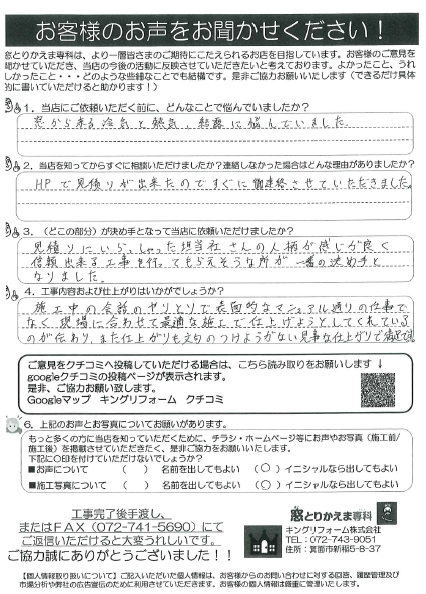 お客様のお声をお聞かせください！
窓とりかえま専科は、より一層皆さまのご期待にこたえられるお店を目指しています。お客様のご意見を
聞かせていただき、当店の今後の活動に反映させていただきたいと考えております。よかったこと、うれ
しかったこと・・・どのような些細なことでも結構です。是非ご協力お願いいたします（できるだけ具体
的に書いていただけると助かります！）
1．当店にご依頼いただく前に、どんなことで悩んでいましたか？
窓から来る冷気と熱気，結露に悩んでいました
2．当店を知ってからすぐに相談いただけましたか？連絡しなかった場合はどんな理由がありましたか？
HPで見積りが出来たのですぐに連絡させていただきました。
3．（どこの部分）が決め手となって当店に依頼いただけましたか？
見積りにいらっしゃった担当社さんの人柄が感じが良く
信頼出来る工事を行ってもらえそうな所が一番の決め手と
なりました。
4．工事内容および仕上がりはいかがでしょうか？
施工中の会話のやりとりで表面的なマニュアル通りの仕事で
なく現場に合わせて最適な施工で仕上げようとしてくれている
のが伝わり、また仕上がりも文句のつけようがない見事な仕上がりで
ご意見をクチコミへ投稿していただける場合は、こちら読み取りをお願いします ↓
googleクチコミの投稿ページが表示されます。
是非、ご協力お願い致します。
Googleマップ　キングリフォーム　クチコミ
6．上記のお声とお写真についてお願いがあります。
もっと多くの方に当店を知っていただくために、チラシ・ホームページ等にお声やお写真（施工前/
施工後）を掲載させていただきたく、是非ご協力をお願いいたします。
下記に○印を付けていただけないでしょうか？
■お声について　（　）　名前を出してもよい　（○）イニシャルなら出してもよい
■施工写真について（　）　名前を出してもよい　（○）イニシャルなら出してもよい
工事完了後手渡し、
またはＦＡＸ（072-741-5690）にて
ご返信いただけると大変うれしいです。
ご協力誠にありがとうございました！！
窓とりかえま専科
キングリフォーム株式会社
TEL：072-743-9051
住所：箕面市新稲5-8-37
【個人情報取り扱いについて】ご記入いただいた個人情報は、お客様からのお問い合わせに対する回答、履歴管理及び
市場分析や弊社の広告宣伝のために利用いたします。お客様の個人情報は厳重に管理いたします。